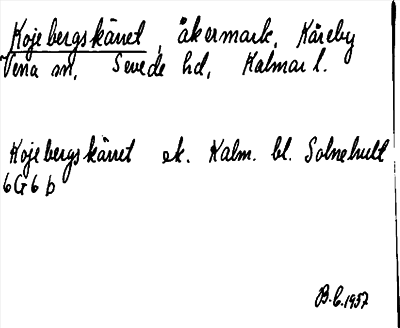 Kojebergskärret, åkermark, Kåreby
Vena sn, Sevede hd, Kalmar l.
Kojebergskärret ek. Kalm. bl. Solnehult
6G6b
B.C. 1957